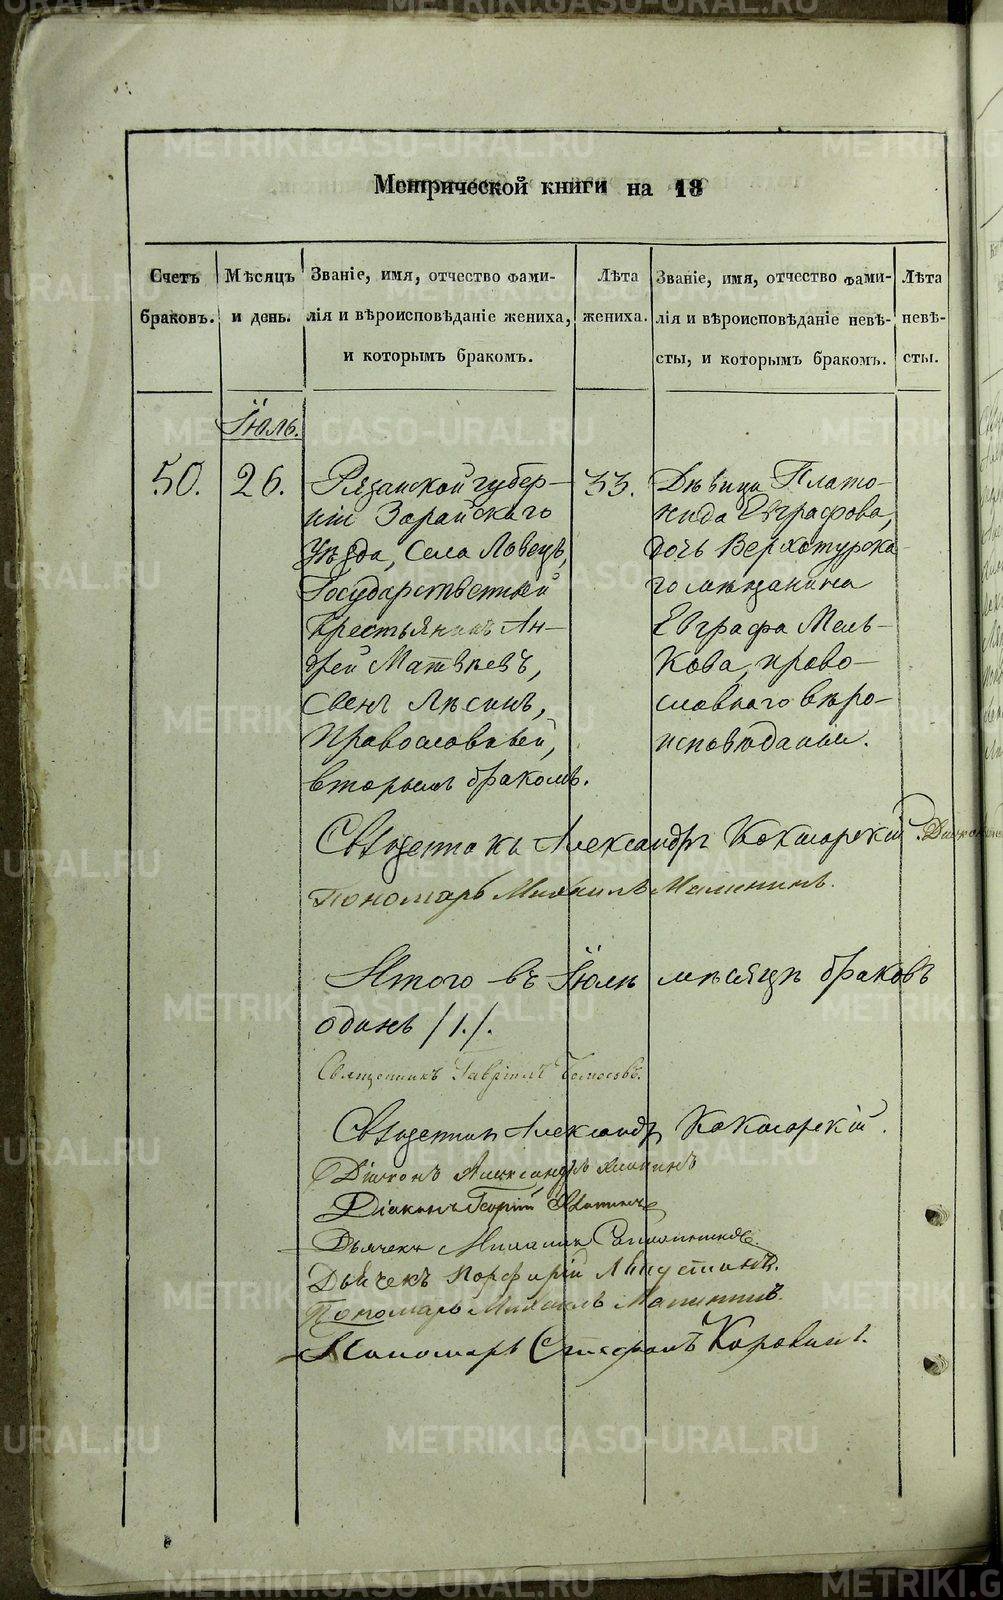 Метрической книги на 18
Счетъ браковъ.
Мѣсяцъ и день.
Званіе, имя, отчество фами-
лія и вѣроисповѣданіе жениха,
и которымъ бракомъ.
Лѣта жениха.
Званіе, имя, отчество фами-
лія и вѣроисповѣданіе невѣ-
сты, и которымъ бракомъ.
Лѣта невѣ-
сты.
Іюль.
50.
26.
Рязанской губер-
ніи Зарайскаго
Уѣзда, Села Ловецъ,
Государственный
Крестьянинъ Ан-
дрей Матвѣевъ,
Православный,
вторымъ бракомъ.
33.
Дѣвица Плато-
нида Евграфова,
дочь Верхотурска-
го мѣщанина
Евграфа Мель-
кова, право-
славнаго вѣро-
исповѣданія.
Священникъ Александръ Кокшарскій.
Пономарь Михаилъ Малининъ.
Итого въ Іюлѣ мѣсяцѣ браковъ
одинъ /1./.
Священникъ Гавріилъ
Священникъ Александръ Кокшарскій.
Діаконъ Александръ
Діаконъ Георгій
Дьячекъ
Дьячекъ Порфирій
Пономарь Михаилъ Малининъ.
Пономарь Стефанъ Коровинъ.
METRIKI.GASO-URAL.RU